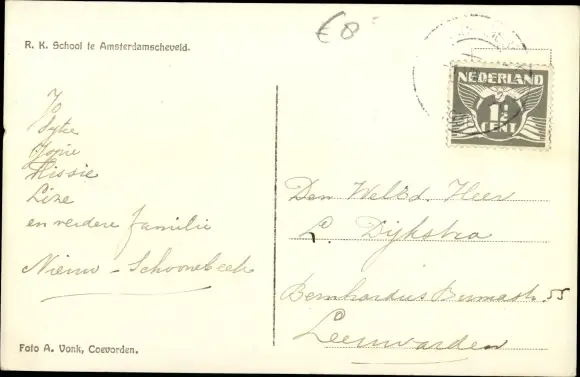 €8
R. K. School te Amsterdamscheveld.
NEDERLAND
1½
CENT
Jo
Sytse
Jopie
Missie
Lize
en verdere familie
Nieuw - Schoonebeek
Den Weled. Heer
L. Dijkstra
Bernhardus Bumastr. 55
Leeuwarden
Foto A. Vonk, Coevorden.